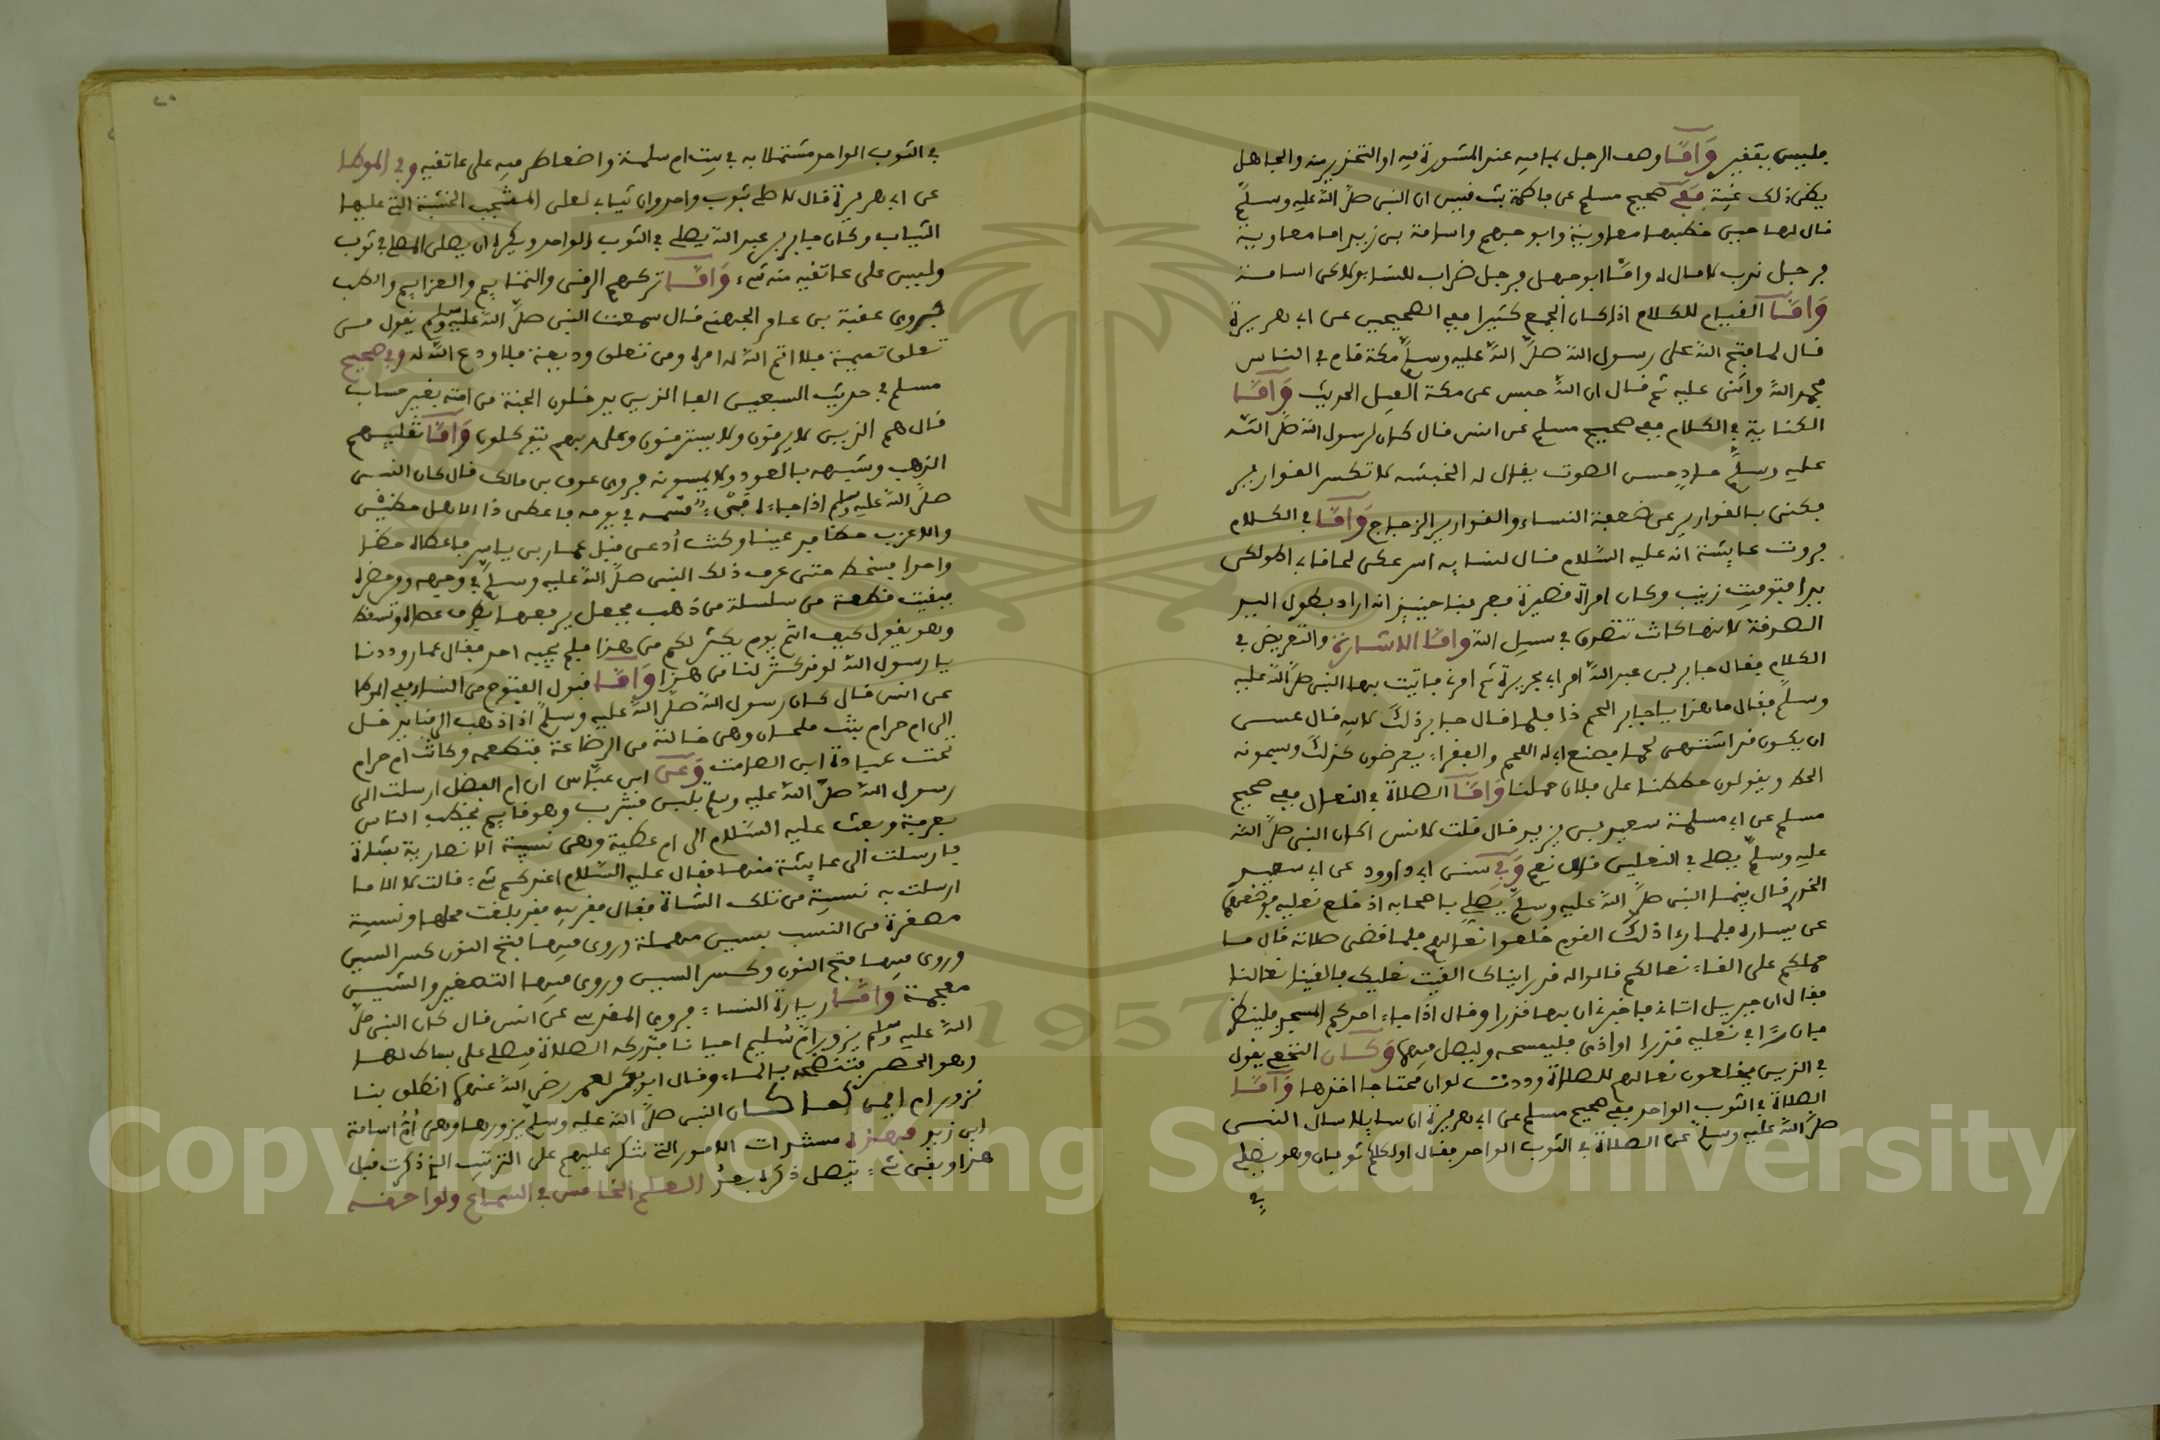 فليس بفقير وَامَّا وصف الرجل بما فيه عند المشورة فيه او التحذير منه والجاهل
يظن ذلك غيبة ففي صحيح مسلم عن فاطمة بنت قيس ان النبي صلى الله عليه وسلم
قال لها حين خطبها معاوية وابو جهم واسامة بن زيد اما معاوية
فرجل ترب لا مال له وامّا ابو جهل فرجل ضراب للنساء ولاكن اسامة
وَامَّا القيام للكلام اذا كان الجمع كثيرا ففي الصحيحين عن ابي هريرة
قال لما فتح الله على رسول الله صلى الله عليه وسلم مكة قام في الناس
فحمد الله واثنى عليه ثم قال ان الله حبس عن مكة الفيل الحديث وَامَّا
الكناية في الكلام ففي صحيح مسلم عن انس قال كان لرسول الله صلى الله
عليه وسلم حادٍ حسن الصوت يقال له انجشه لا تكسر القوارير
فكنى بالقوارير عن ضعفة النساء والقوارير الزجاج وَامَّا في الكلام
فروت عايشة انه عليه السّلام قال لنسايه اسرعكن لحاقا بي اطولكن
يدا فتوفيت زينب وكان امرأة قصيرة فعرفنا حينيذ انه اراد بطول اليد
الصدقة لانها كانت تتصدق في سبيل الله وامّا الاشارة والتعريض في
الكلام فقال جابر بن عبد الله امر ابي بحريرة ثم امرني فاتيت بها النبي صلى الله عليه
وسلم فقال ما هذا يا جابر الحم ذا فلمّا قال جابر ذلك لابيه قال عسى
ان يكون قد اشتهى لحما فصنع له اللحم والفقراء يعرضون كذلك ويسمونه
الحط ويقولون حططنا على فلان حملنا وَامَّا الصلاة في النعال ففي صحيح
مسلم عن ابي مسلمة سعيد بن يزيد قال قلت لانس اكان النبي صلى الله
عليه وسلم يصلي في النعلين قال نعم وَفي سنن ابي داوود عن ابي سعيد
الخدر قال بينما النبي صلى الله عليه وسلم يصلي باصحابه اذ خلع نعليه فوضعهما
عن يساره فلما رءا ذلك القوم خلعوا نعالهم فلما قضى صلاته قال ما
حملكم على القاء نعالكم قالوا له قد رايناك القيت نعليك فالقينا نعالنا
فقال ان جبريل اتاني فاخبرني ان بها قذرا وقال اذا جاء احدكم المسجد فلينظر
فان رءا في نعليه قذرا او اذى فليمسحه وليصل فيهما وَكان النخعي يقول
في الذين يخلعون نعالهم للصلاة وددت لو ان محتاجا اخذها وَامَّا
الصلاة في الثوب الواحد ففي صحيح مسلم عن ابي هريرة ان سايلا سال النبي
صلى الله عليه وسلم عن الصلاة في الثوب الواحد فقال او لكلكم ثوبان وهو يصلي
في
في الثوب الواحد مشتملا به في بيت ام سلمة واضعا طرفيه على عاتقيه وفي الموطا
عن ابي هريرة قال لاصلي بثوب واحد وان ثيابي لعلى المشجب الخشبة التي عليها
الثياب وكان جابر بن عبد الله يصلي في الثوب الواحد ويكره ان يصلي المصلي في ثوب
وليس على عاتقيه منه شيء وَامَّا تركهم الرقى والتمايم والعزايم والطب
فروى عقبة بن عامر الجهني قال سمعت النبي صلى الله عليه وسلم يقول من
تعلق تميمة فلا اتم الله له امرا ومن تعلق وديعة فلا ودع الله له وفي صحيح
مسلم في حديث السبعين الفا الذين يدخلون الجنة من امته بغير حساب
قال هم الذين لا يرقون ولا يسترقون وعلى ربهم يتوكلون وَامَّا تقليبهم
الذهب وشبهه بالعود ولا يمسونه فروى عوف بن مالك قال كان النبي
صلى الله عليه وسلم اذا جاءه فيء قسمه في يومه فاعطى ذا الاهل حظين
والاعزب حظا فدعينا وكنت أدعى قبل عمار بن ياسر فاعطاه حظا
واحدا فسخط حتى عرف ذلك النبي صلى الله عليه وسلم في وجهه ومن حضره
فبقيت قطعة من سلسلة من ذهب فجعل يرفعها بطرف عصاه وتسقط
وهو يقول كيف انتم يوم يكثر لكم من هذا فلم يجبه احد فقال عمار وددنا
يا رسول الله لو قد كثر لنا من هذا وَامَّا قبول الفتوح من النساء ففي الموطا
عن انس قال كان رسول الله صلى الله عليه وسلم اذا ذهب الى قبا يدخل
الى ام حرام بنت ملحان وهي خالته من الرضاعة فتطعمه وكانت ام حرام
تحت عبادة ابن الصامت وَعن ابن عبّاس ان ام الفضل ارسلت الى
رسول الله صلى الله عليه وسلم بلبن فشرب وهو قايم يخطب الناس
بعرفة وبعث عليه السّلام الى ام عطية وهي نسيبة الانصارية بشاة
فارسلت الى عايشة منها فقال عليه السّلام اعندكم شيء قالت لا الا ما
ارسلت به نسيبة من تلك الشاة فقال فقربيه فقد بلغت محلها ونسيبة
مصغرة من النسب بسين مهملة وروى فيها بفتح النون كسر السين
وروى فيها فتح النون وكسر السين وروى فيها التصغير والشين
معجمة وَامَّا زيارة النساء فروى المقدسي عن انس قال كان النبي صلى
الله عليه وسلم يزور امّ سُليم احيانا فتدركه الصلاة فيصلي على بساط لها
وهو الحصير فتنضحه بالماء وقال ابو بكر لعمر رضي الله عنهما انطلق بنا
نزور ام ايمن كما كان النبي صلى الله عليه وسلم يزورها وهي اُمّ اسامة
ابن زيد فهذه مستندات الامور التي تنكر عليهم على الترتيب التي ذكرت قبل
هذا وبقي شيء يتصل ذكره بعدُ الفصل الخامس في السماع ولواحقه
Copyright © King Saud University
1957